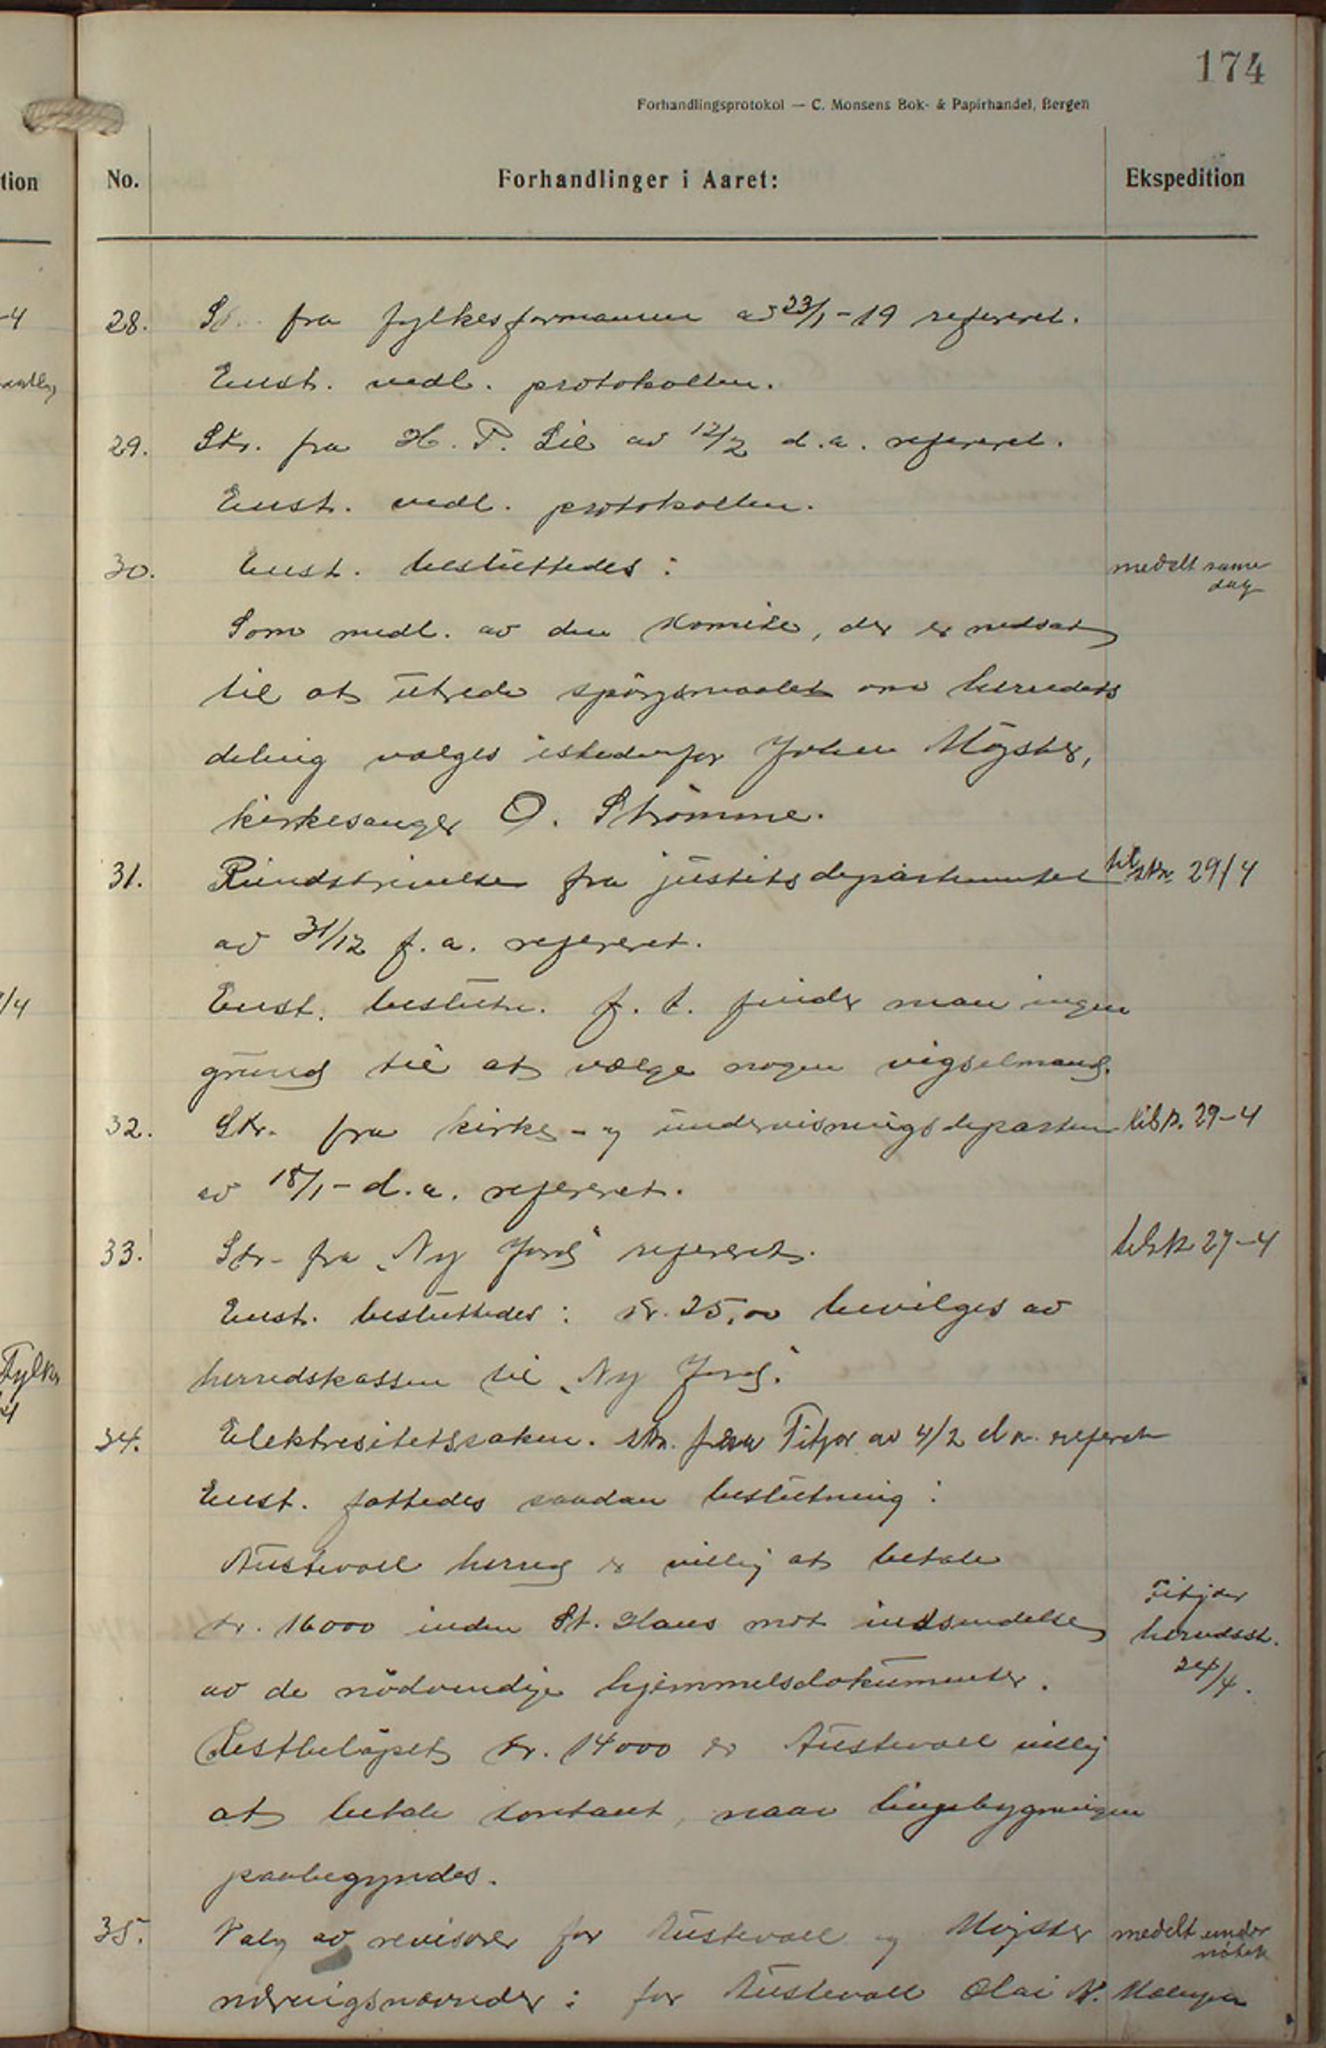 174
Forhandlingsprotokol — C. Monsens Bok- & Papirhandel, Bergen
tion
No.
Forhandlinger i Aaret:
Ekspedition
-4
28. fra fylkesformannen av 23/1-19 refereret.
Enst. vedl. protokollen.
29. Skr. fra H. P. Lie av 12/2 d.a. refereret.
Enst. vedl. protokollen.
30. Enst. besluttedes:
medelt same
dag
Som medl. av den komite, der er nedsat
til at utrede spörgsmaalet om herredets
deling vælges istedenfor Johan Møgster,
kirkesanger O. Strömme.
31. Rundskrivelse fra justitsdepartementet
tilskr. 29/4
av 31/12 f.a. refereret.
Enst. beslutn. f. t. finder man ingen
grund til at vælge nogen vigselmand.
/4
32. Skr. fra kirke- og undervisningsdepartem
tilsk. 29-4
av 18/1- d.a. refereret.
33. Skr. fra „Ny Jord" refereret.
tilsk 27-4
Enst. besluttedes: kr. 25,00 bevilges av
herredskassen til „Ny Jord".
Fylkes
34. Elektresitetssaken. skr. fra Fitjar av 4/2 d.a. referet
Enst. fattedes saadan beslutning:
Austevoll herred er villig at betale
kr. 16000 inden St. Hans mot indsendelse
Fitjar
herredsst.
24/4.
av de nödvendige hjemmelsdokumenter.
Restbelöpet kr. 14000 er Austevoll villig
at betale kontant, naar linjebygningen
paabegyndes.
35. Valg av revisorer for Austevoll og Møgster
medelt under
næringsnævnder: for Austevoll Olai N.